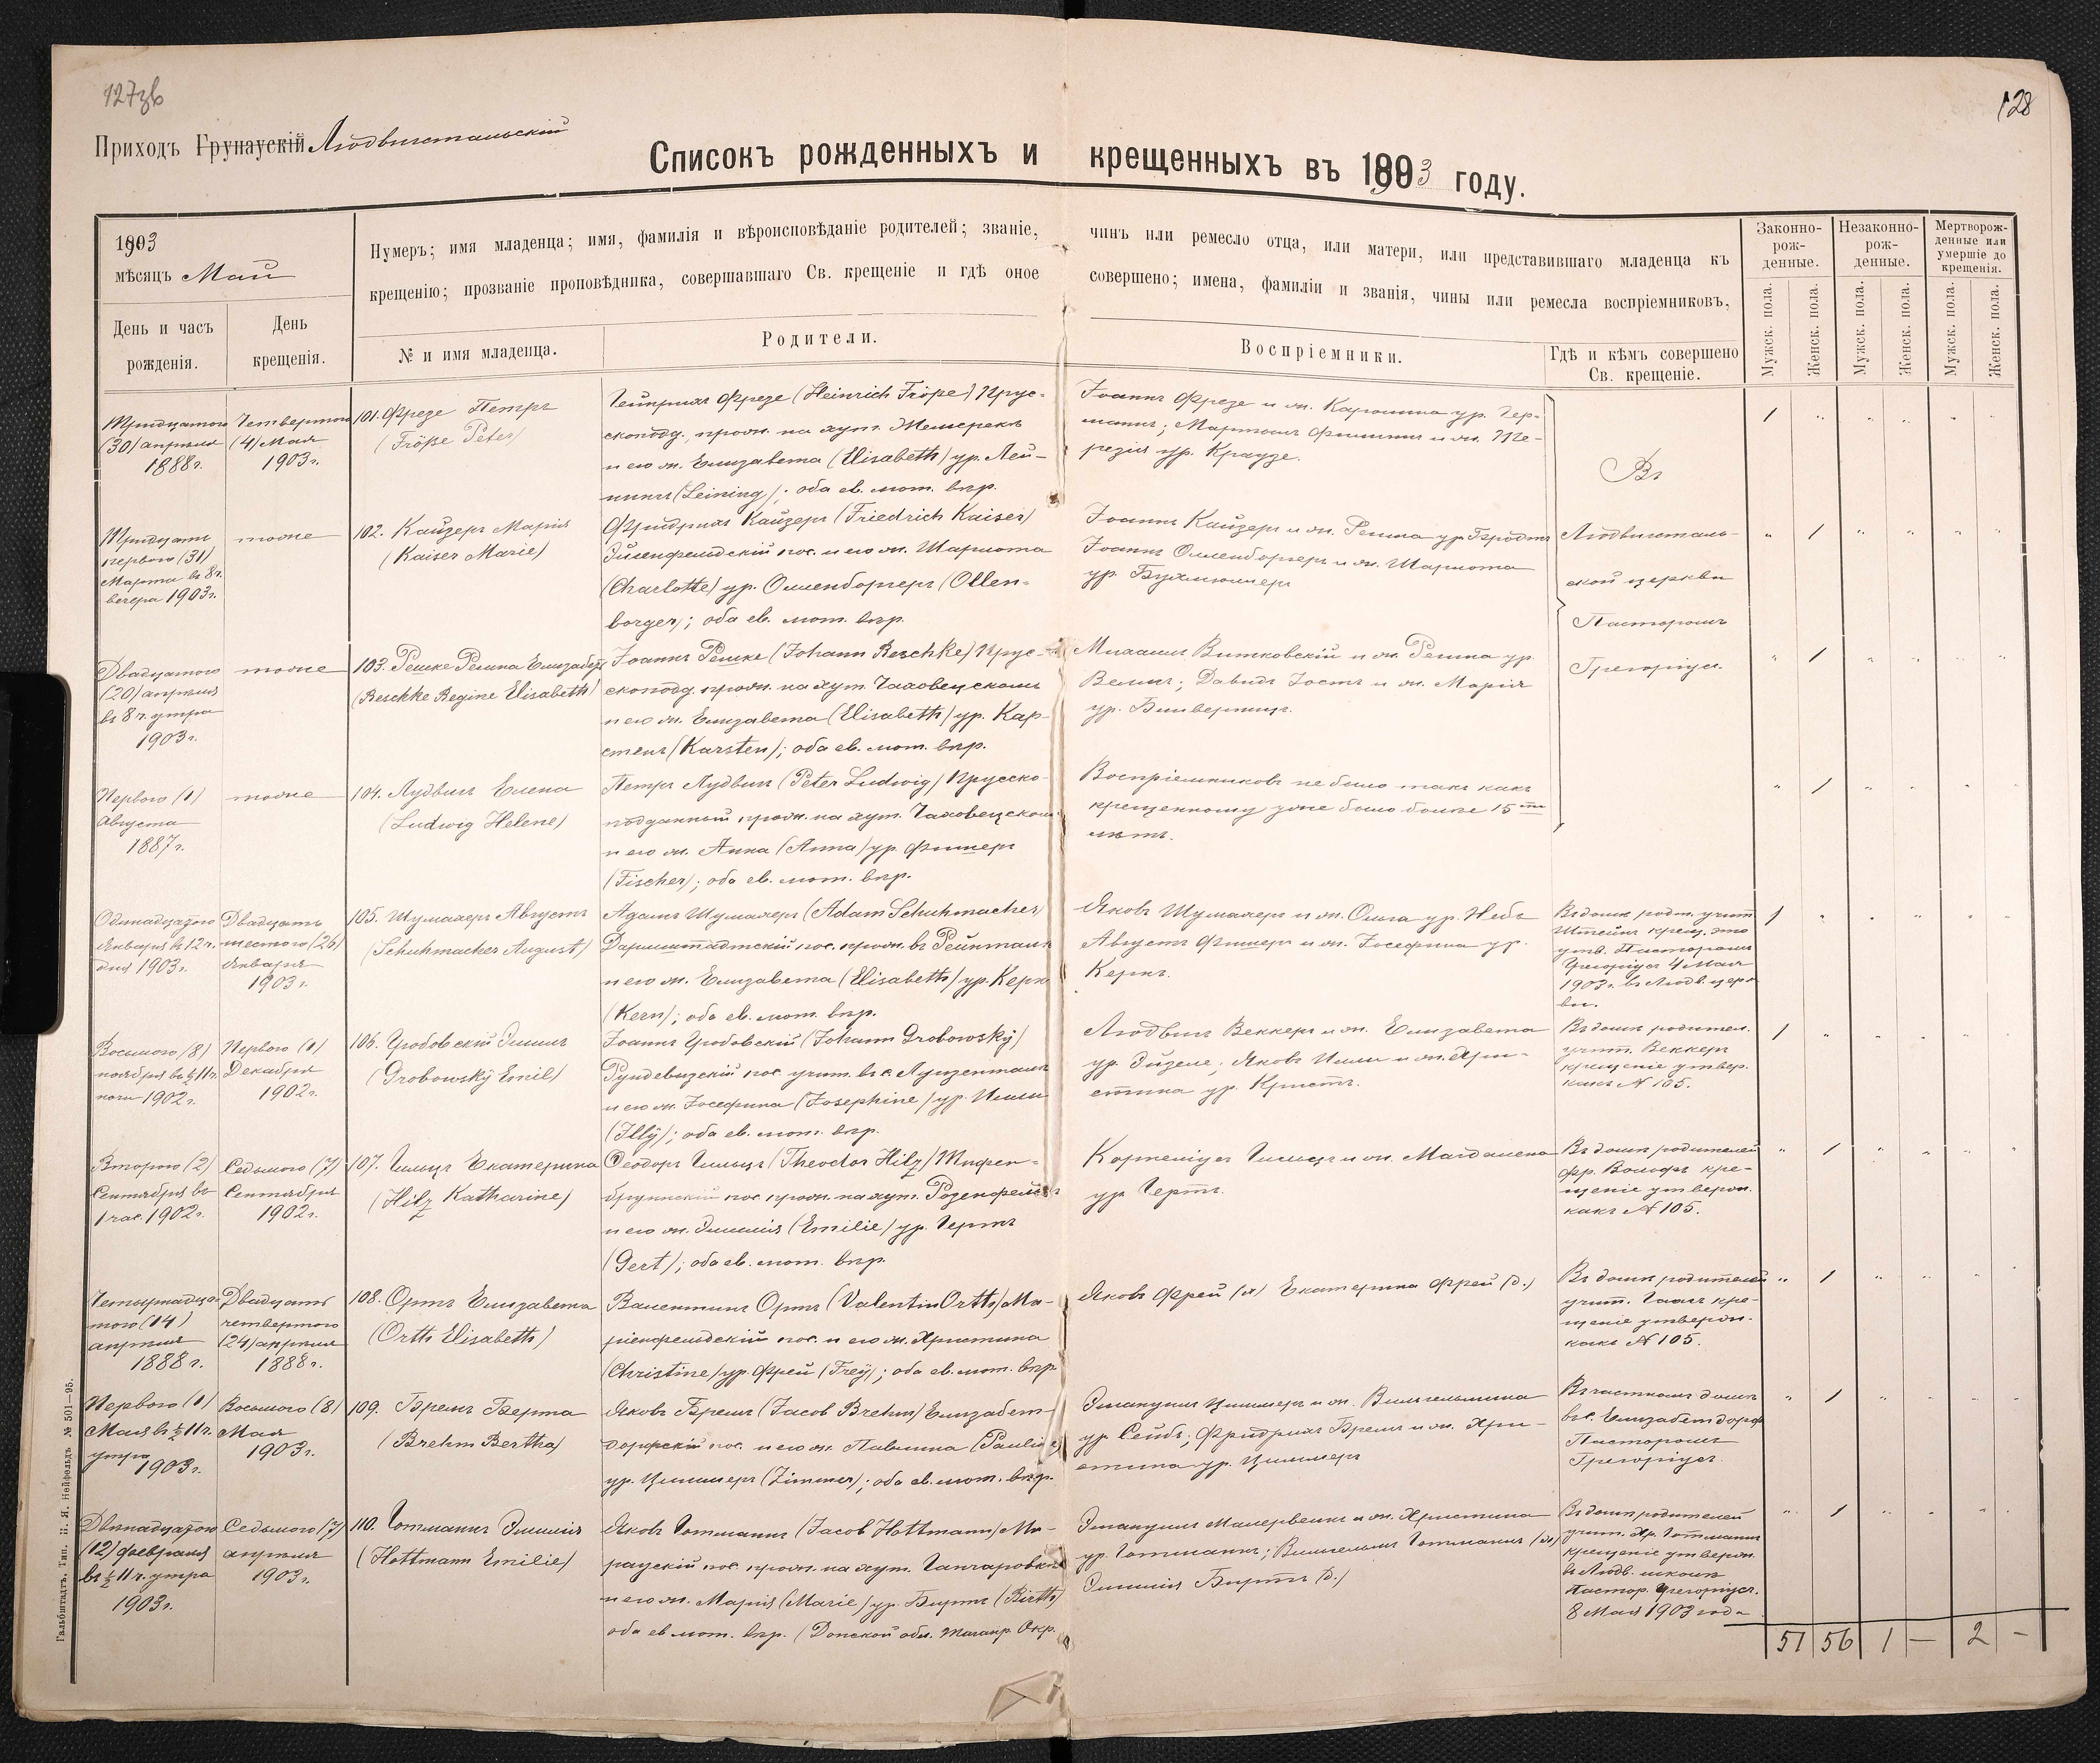 127зв
128
Приходъ Грунаускій Людвигстальскій
Списокъ рожденныхъ и крещенныхъ въ 1903 году.
1903
мѣсяцъ Май
Нумеръ; имя младенца; имя, фамилія и вѣроисповѣданіе родителей; званіе, чинъ или ремесло отца, или матери, или представившаго младенца къ
крещенію; прозваніе проповѣдника, совершавшаго Св. крещеніе и гдѣ оное совершено; имена, фамиліи и званія, чины или ремесла воспріемниковъ,
День и часъ
рожденія.
День
крещенія.
№ и имя младенца.
Родители.
Воспріемники.
Гдѣ и кѣмъ совершено
Св. крещеніе.
Законно-
рож-
денные.
Незаконно-
рож-
денные.
Мертворож-
денные или
умершіе до
крещенія.
Мужск. пола.
Женск. пола.
Мужск. пола.
Женск. пола.
Мужск. пола.
Женск. пола.
Тридцатого
(30) апрѣля
1888 г.
Четвертого
(4) Мая
1903 г.
101. Фрезе Петръ
(Fröße Peter)
Гейнрихъ Фрезе (Heinrich Fröße) Прус-
скоподд., прож. на хут.
и его ж. Елизавета (Elisabeth) ур. Лей-
нингъ (Leining); оба ев. лют. вѣр.
Іоаннъ Фрезе и ж. Каролина ур. Гер-
манъ; Мартынъ и ж. Те-
резія ур. Краузе.
Въ
Людвигсталь-
ской церкви
Пасторомъ
Грегоріусъ.
1
Тридцать
перваго (31)
Марта въ 8 ч.
вечера 1903 г.
тоже
102. Кайзеръ Марія
(Kaiser Marie)
Фридрихъ Кайзеръ (Friedrich Kaiser)
Тиленфельдскій пос. и его ж. Шарлота
(Charlotte) ур. Олленборгеръ (Ollen-
borger); оба ев. лют. вѣр.
Іоаннъ Кайзеръ и ж.
Іоаннъ Олленборгеръ и ж. Шарлота
ур. Бухмюллеръ
1
Двадцатого
(20) апрѣля
въ 8 ч. утра
1903 г.
тоже
103. Решке Регина Елизабет
(Reschke Regine Elisabeth)
Іоаннъ Решке (Johann Reschke) Прус-
скоподд. прож. на хут. Чаховецскомъ
и его ж. Елизавета (Elisabeth) ур. Кар-
стенъ (Karsten); оба ев. лют. вѣр.
Михаилъ Витковскій и ж. Регина ур.
Вельмъ; Давидъ Іостъ и ж. Марія
ур.
1
Перваго (1)
Августа
1887 г.
тоже
104. Лудвигъ Елена
(Ludwig Helene)
Петръ Лудвигъ (Peter Ludwig) Прусско-
подданный прож. на хут. Чаховецском
и его ж. Анна (Anna) ур. Фишеръ
(Fischer); оба ев. лют. вѣр.
Воспріемниковъ не было такъ какъ
крещенному уже было болѣе 15ти
лѣтъ.
1
Одинадцатого
Января въ 12 ч.
дня 1903 г.
Двадцать
шестого (26)
Января
1903 г.
105. Шумахеръ Августъ
(Schuhmacher August)
Адамъ Шумахеръ (Adam Schuhmacher)
Дармштадтскій пос. прож. въ Рейнталѣ
и его ж. Елизавета (Elisabeth) ур. Кернъ
(Kern); оба ев. лют. вѣр.
Яковъ Шумахеръ и ж. Ольга ур.
Августъ Фишеръ и ж. Іосефина ур.
Кернъ.
Въ домѣ род. учит.
Штейнъ крещ. это
утв. Пасторомъ
Грегоріусъ 4 Мая
1903 г. въ Людв. церк
ви.
1
Восьмого (8)
ноября въ ½ 11 ч.
ночи 1902 г.
Перваго (1)
Декабря
1902 г.
106. Гробовскій Эмиль
(Grobowskÿ Emil)
Іоаннъ Гробовскій (Johann Grobowskÿ)
Рундевизскій пос. учит. въ с. Луизенталѣ
и его ж. Іосефина (Josephine) ур. Илли
(Jllÿ); оба ев. лют. вѣр.
Людвигъ Веккеръ и ж. Елизавета
ур. Эйзеле; Яковъ Илли и ж. Хри-
стина ур. Кристъ.
Въ домѣ родител.
учит. Веккеръ
крещеніе утвер.
какъ № 105.
1
Второго (2)
Сентября въ
1 час. 1902 г.
Седьмого (7)
Сентября
1902 г.
107. Гильцъ Екатерина
(Hilz Katharine)
Ѳеодоръ Гильцъ (Theodor Hilz) Тифен-
бруннскій пос. прож. на хут. Розенфельдъ
и его ж. Эмилія (Emilie) ур. Гертъ
(Gert); оба ев. лют. вѣр.
Корнеліусъ Гильцъ и ж. Магдалена
ур. Гертъ.
Въ домѣ родителей
Фр. Вольфъ кре-
щеніе утвержд.
какъ № 105.
1
Четырнадца-
того (14)
апрѣля
1888 г.
Двадцать
четвертого
(24) апрѣля
1888 г.
108. Ортъ Елизавета
(Orth Elisabeth)
Валентинъ Ортъ (Valentin Orth) Ма-
ріенфельдскій пос. и его ж. Христина
(Christine) ур. Фрей (Freÿ); оба ев. лют. вѣр
Яковъ Фрей (х) Екатерина Фрей (д.)
Въ домѣ родителей
учит. Гаагъ кре-
щеніе утвержд.
какъ № 105.
1
Перваго (1)
Мая въ ½ 11 ч.
утра 1903 г.
Восьмого (8)
Мая
1903 г.
109. Бремъ Берта
(Brehm Bertha)
Яковъ Бремъ (Jacob Brehm) Елизабет-
дорфскій пос. и его ж. Павлина
ур. Циммеръ (Zimmer); оба ев. лют. вѣр.
Эмануилъ Циммеръ и ж. Вильгельмина
ур. Сейбъ; Фридрихъ Бремъ и ж. Хри-
стина ур. Циммеръ
Въ частномъ домѣ
въ с. Елизабетдорф
Пасторомъ
Грегоріусъ.
1
Двѣнадцатого
(12) февраля
въ ½ 11 ч. утра
1903 г.
Седьмого (7)
апрѣля
1903 г.
110. Готманнъ Эмилія
(Hottmann Emilie)
Яковъ Готманнъ (Jacob Hottmann) Ма-
раускій пос. прож. на хут. Ганчаровкѣ
и его ж. Марія (Marie) ур. Биртъ (Birth)
оба ев лют. вѣр. (Донской обл. Таганр. Окр.
Эмануилъ и ж. Христина
ур. Готманнъ; Вильгельмъ Готманнъ (х)
Эмилія Биртъ (д.)
Въ домѣ родителей
учит. Хр. Готманнъ
крещеніе утвержд.
въ Людв. школѣ
Пастор. Грегоріусъ.
8 Мая 1903 года
1
51 56 1 — 2 —
Гальбштадтъ, Тип. П. Я. Нейфельдъ № 501—95.